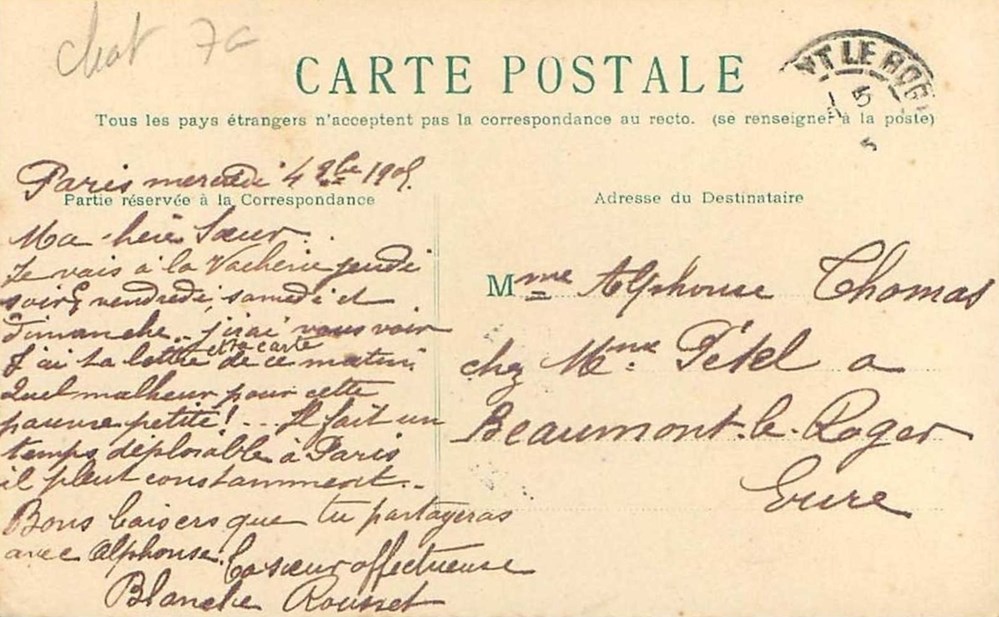 chat 7c
CARTE POSTALE
Tous les pays étrangers n'acceptent pas la correspondance au recto. (se renseigner à la poste)
NT LE ROG
5
Paris mercredi 4 8bre 1905.
Partie réservée à la Correspondance
Ma chère Sœur.
Je vais à la Vacherie jeudi
soir & vendredi, samedi et
dimanche.. j'irai vous voir
et ta carte
J'ai ta lettre de ce matin.
Quel malheur pour cette
pauvre petite! ... Il fait un
temps déplorable à Paris
il pleut constamment..
Bons baisers que tu partageras
avec Alphonse. Ta sœur affectueuse
Blanche Rousset
Adresse du Destinataire
Mme Alphonse Thomas
chez Mme Pétel a
Beaumont-le-Roger
Eure